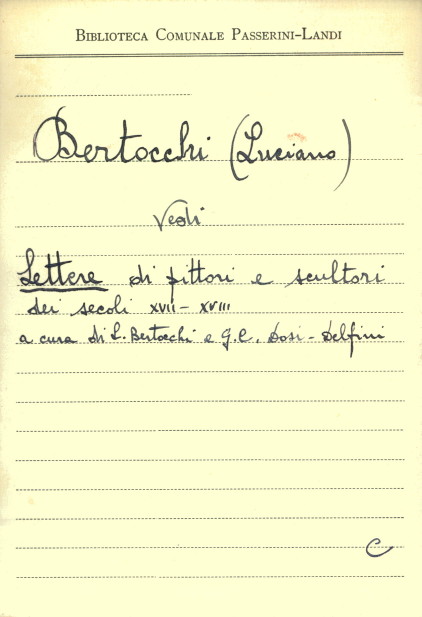 BIBLIOTECA COMUNALE PASSERINI-LANDI
Bertocchi (Luciano)
Vedi
Lettere di pittori e scultori
dei secoli XVII - XVIII
a cura di L. Bertocchi e G.C. Dosi-Delfini
C